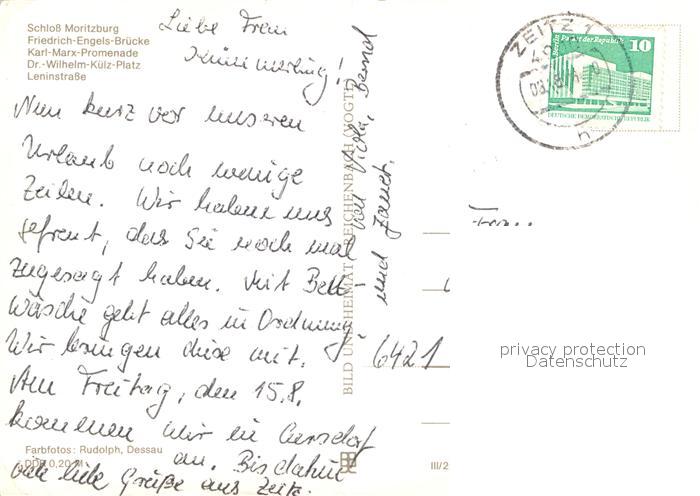 Schloß Moritzburg
Friedrich-Engels-Brücke
Karl-Marx-Promenade
Dr.-Wilhelm-Külz-Platz
Leninstraße
Liebe Frau
Nun kurz vor unseren
Urlaub noch wenige
Zeilen. Wir haben uns
gefreut, das Sie noch mal
zugesagt haben. Mit Bett-
wäsche geht alles in Ordnung
Wir bringen diese mit.
Am Freitag, den 15.8.
kommen wir in
an. Bis dahin
viele liebe Grüße aus Zeitz.
von Viola, Bernd
und Janet.
Farbfotos: Rudolph, Dessau
DDR 0,20 M
BILD UND HEIMAT REICHENBACH (VOGTL)
III/2
ZEITZ 1
h
Berlin Palast der Republik
10
DEUTSCHE DEMOKRATISCHE REPUBLIK
Frau
6421
privacy protection
Datenschutz